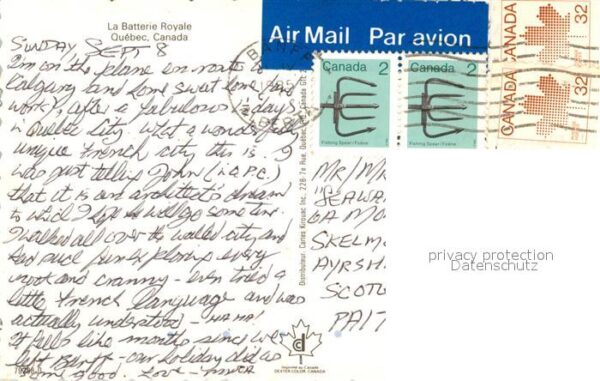 La Batterie Royale
Québec, Canada
Air Mail Par avion
Canada 2
Canada 2
Fishing Spear / Foëne
Fishing Spear / Foëne
CANADA 32
CANADA 32
SUNDAY SEPT 8
I'm on the plane en route
Calgary and home sweet home and
work, after a fabulous days
in Quebec City. What a wonderfully
unique French city this is. I
was just telling John
that it is an architect's dream
to which I hope he will go some time.
I walked all over the walled city and
had such fun exploring every
nook and cranny - even tried a
little French language and was
actually understood - HA HA!
It feels like months since we
left Banff - our holiday did us
some good. Love -
Distributeur: Carles Kirouac Inc. Québec
MR/MR
"SEAW
6A MO
SKELM
AYRSH
SCOT
PA17
privacy protection
Datenschutz
Imprimé au Canada
DEXTER COLOR, CANADA